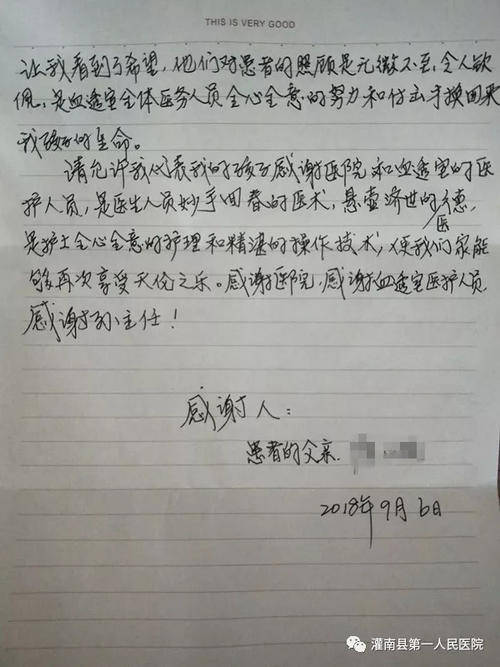 THIS IS VERY GOOD
让我看到了希望,他们对患者的照顾是无微不至,令人钦
佩。是血透室全体医务人员全心全意的努力和付出才换回来
我孩子的生命。
请允许我代表我的孩子感谢医院和血透室的医
护人员,是医生人员妙手回春的医术,悬壶济世的医德,
是护士全心全意的护理和精湛的操作技术,使我们家能
够再次享受天伦之乐。感谢医院,感谢血透室医护人员
感谢孙主任!
感谢人:
患者的父亲.
2018年9月6日
灌南县第一人民医院